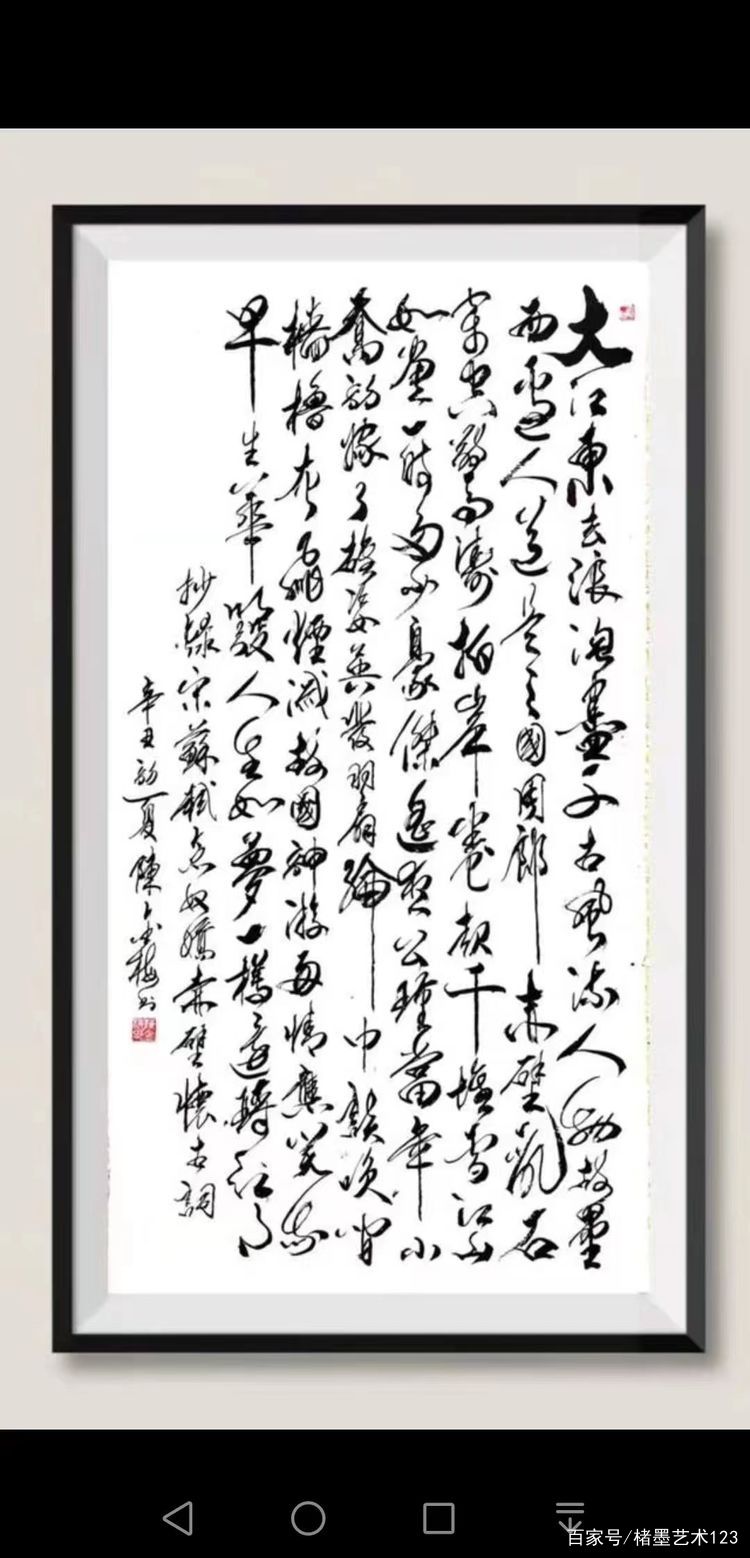 大江東去浪淘盡千古風流人物故壘
西邊人道是三國周郎赤壁亂石
穿空驚濤拍岸卷起千堆雪江山
如畫一時多少豪傑遙想公瑾當年小
喬初嫁了雄姿英發羽扇綸巾談笑間
檣櫓灰飛煙滅故國神游多情應笑我
早生華髮人生如夢一樽還酹江月
抄錄宋蘇軾念奴嬌赤壁懷古詞
辛丑初夏陳梅书
百家号/楮墨艺术123